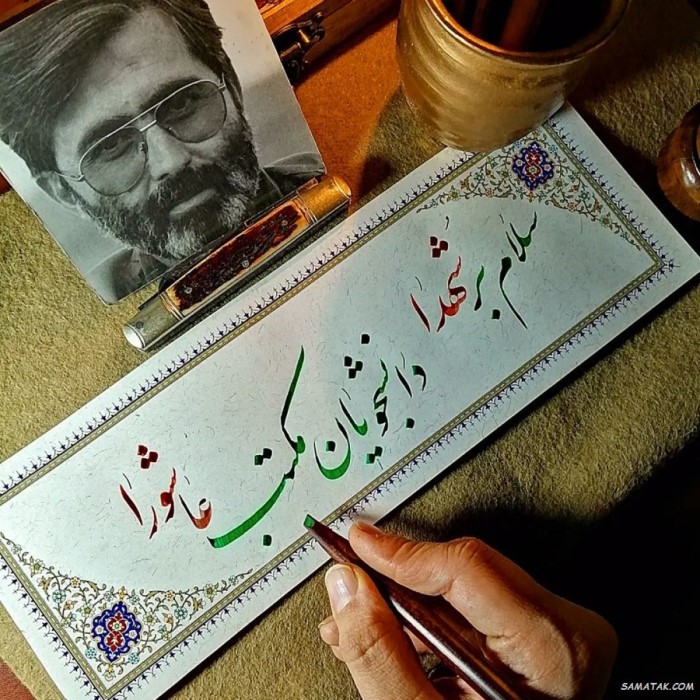 سلام بر شهدا
دانشجویان مکتب عاشورا
SAMATAK.COM